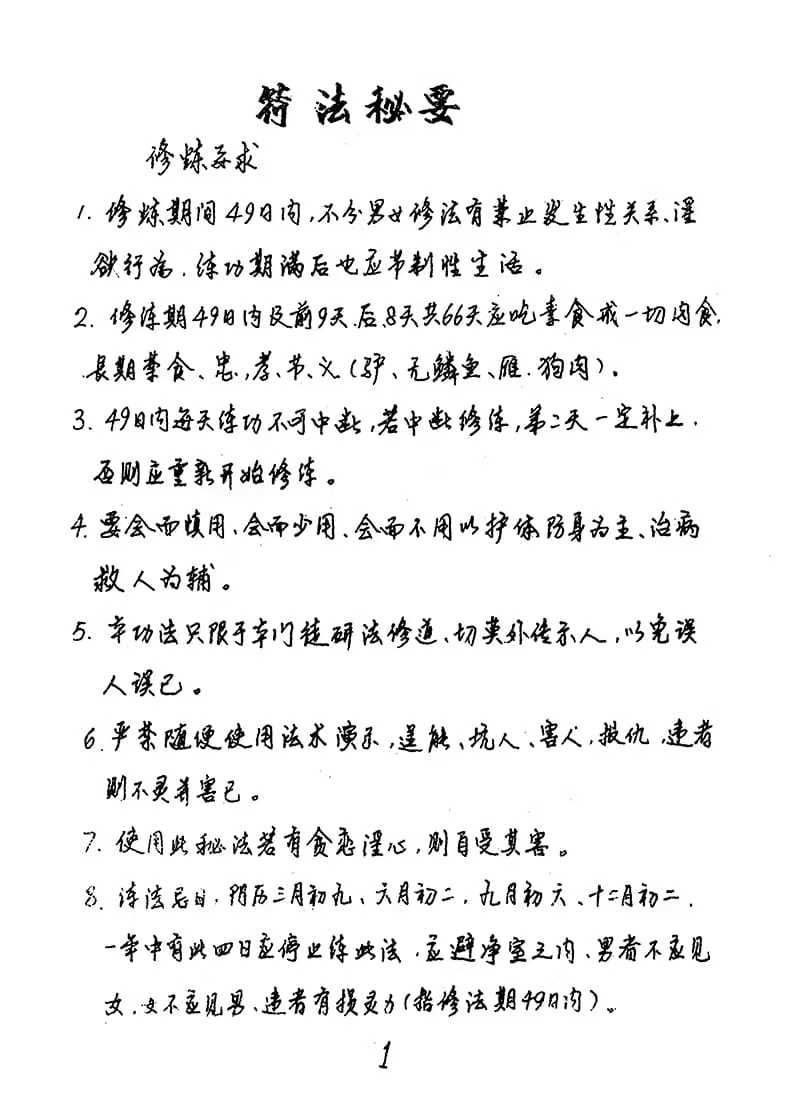 符法秘要
修炼要求
1. 修炼期间49日内,不分男女修法有禁止发生性关系、淫
欲行为.练功期满后也应节制性生活。
2. 修练期49日内及前9天.后.8天共66天应吃素食戒一切肉食.
长期禁食、忠,孝、节、义(驴、无鳞鱼、雁.狗肉)。
3. 49日内每天练功不可中断,若中断修练,第二天一定补上.
否则应重新开始修练。
4. 要会而慎用、会而少用、会而不用以护体防身为主、治病
救人为辅。
5. 本功法只限于本门徒研法修道、切莫外传示人,以免误
人误己。
6. 严禁随便使用法术演示,逞能、坑人、害人,报仇,违者
则不灵并害己。
7. 使用此秘法若有贪恋淫心,则自受其害。
8. 练法忌日,阴历三月初九、六月初二,九月初六、十二月初二.
一年中有此四日应停止练此法,应避净室之内、男者不应见
女,女不应见男、违者有损灵力(指修法期49日内)。
1